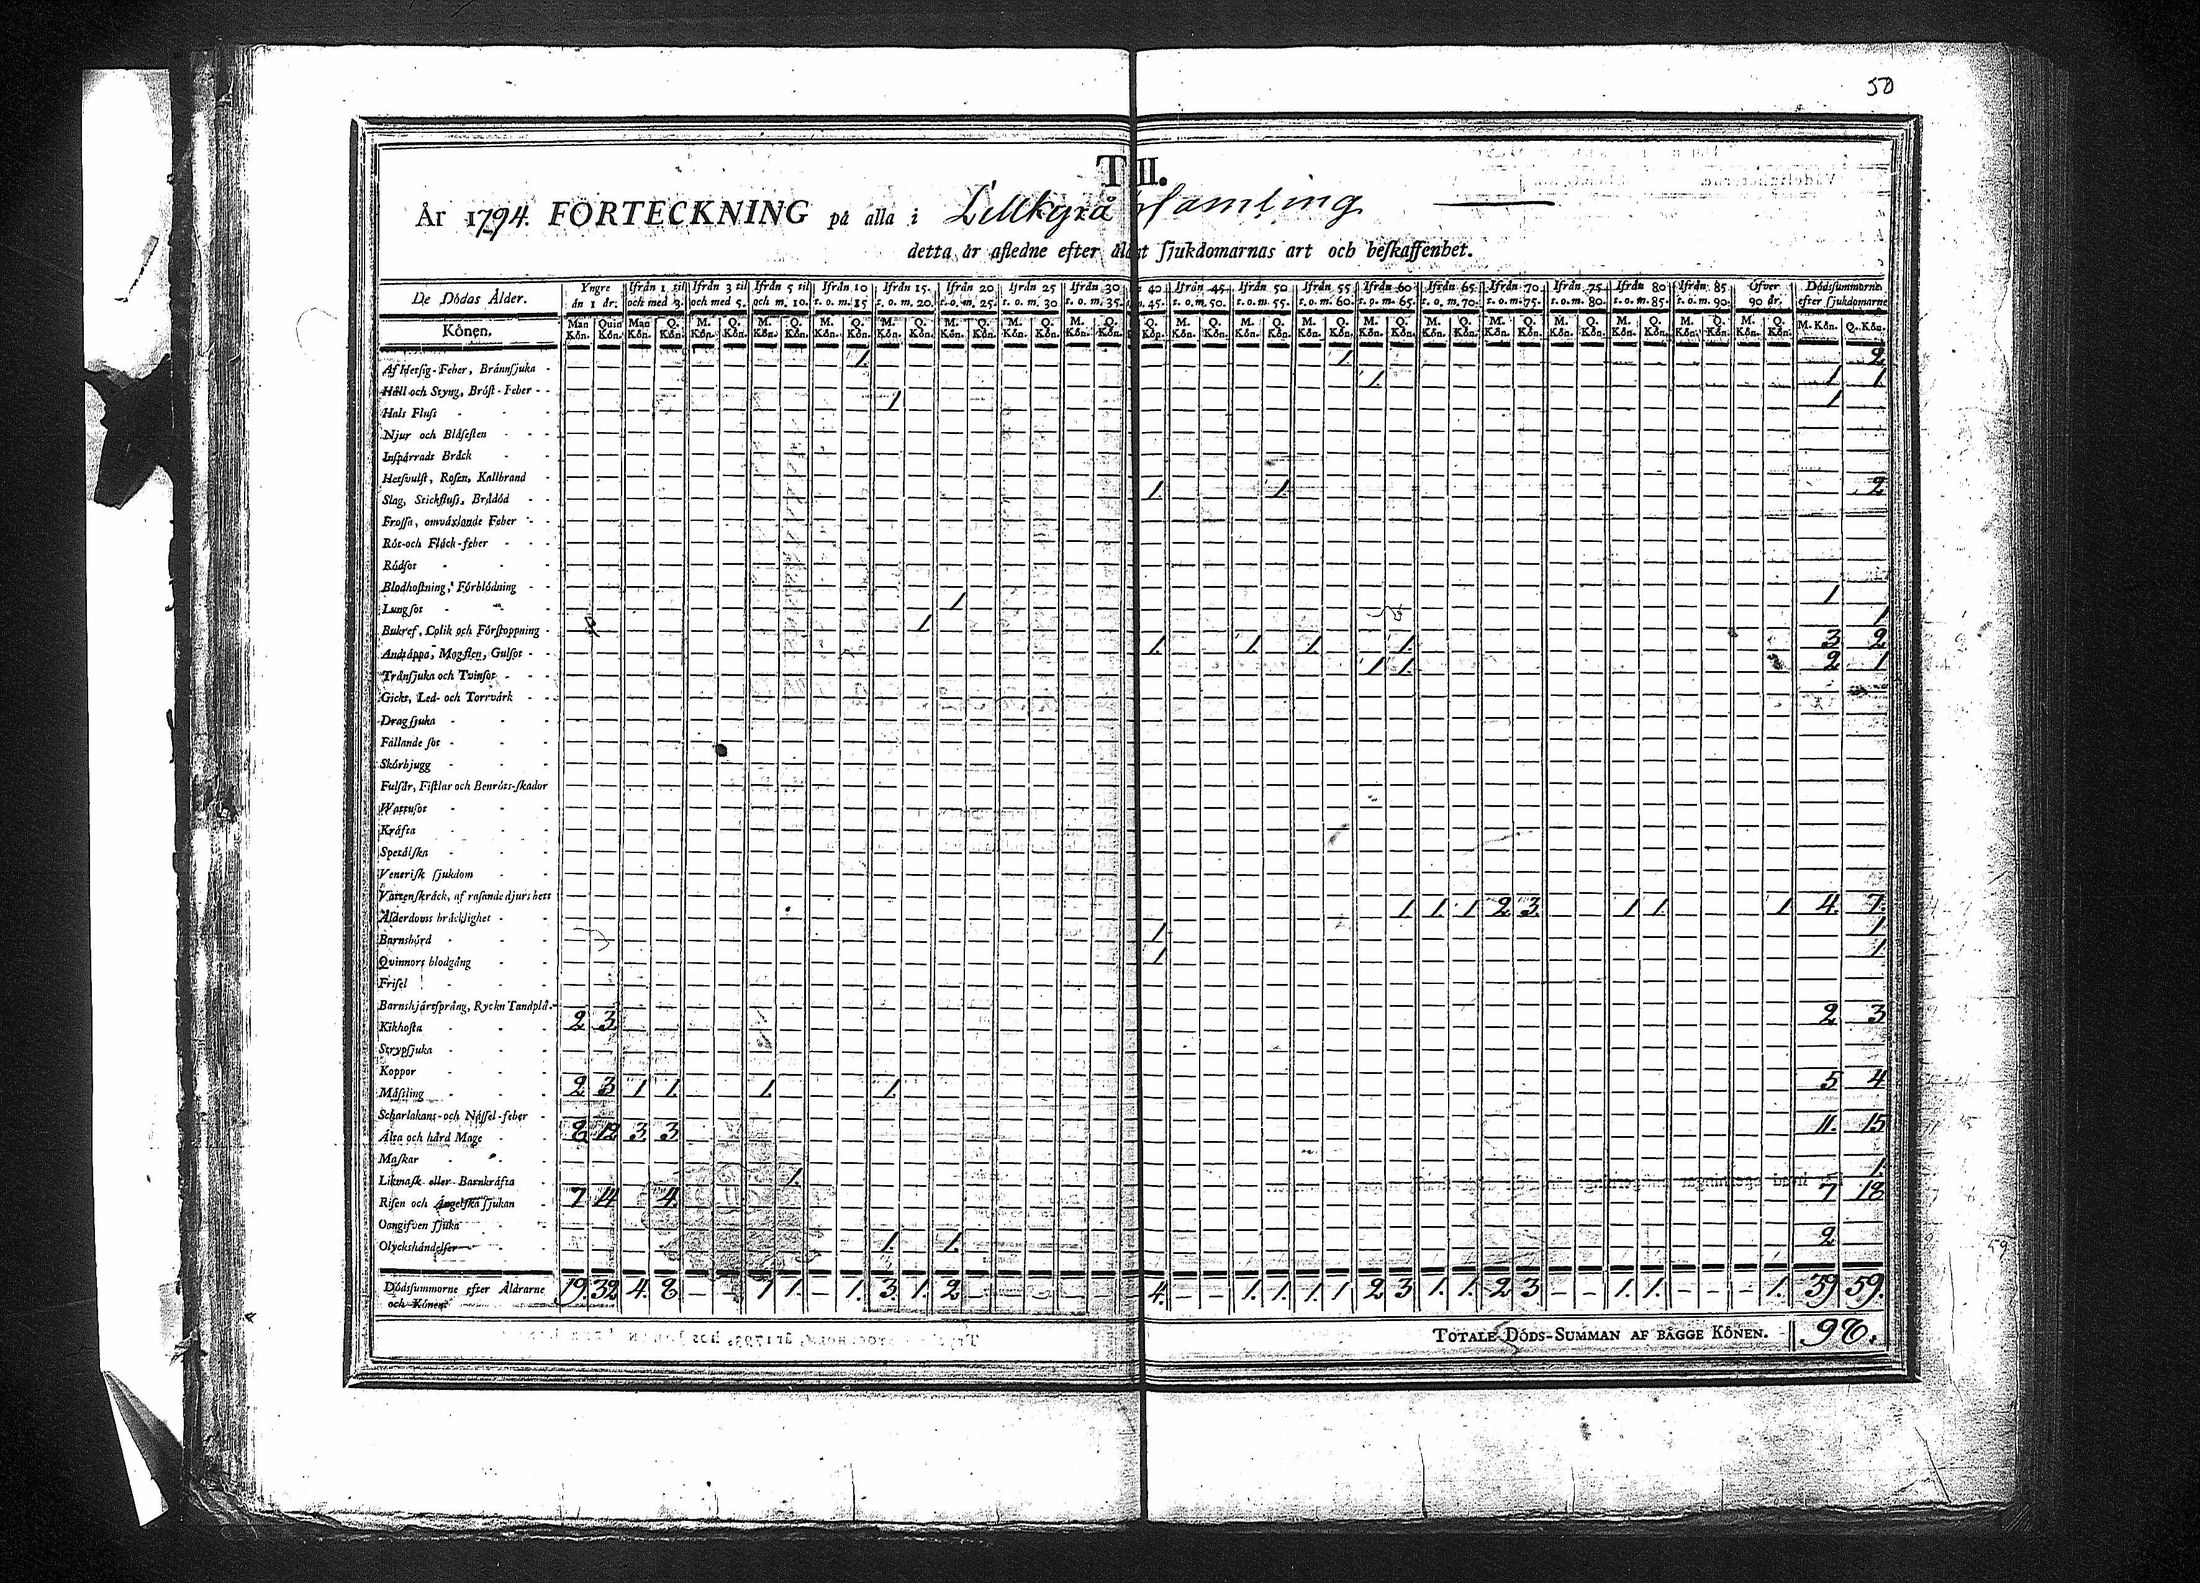 50
T II.
År 1794. FÖRTECKNING på alla i Lillkyrå Samling
detta år afledne efter ålder sjukdomarnas art och beskaffenhet.
De Dödas Ålder. Yngre än 1 år. Ifrån 1 til och med 3. Ifrån 3 til och med 5. Ifrån 5 til och m. 10. Ifrån 10 t. o. m. 15 Ifrån 15. t. o. m. 20. Ifrån 20 t. o. m. 25. Ifrån 25 t. o. m. 30 Ifrån 30 t. o. m. 35. 40. 45. Ifrån 45. t. o. m. 50. Ifrån 50 t. o. m. 55. Ifrån 55 t. o. m. 60. Ifrån 60 t. o. m. 65. Ifrån 65. t. o. m. 70. Ifrån 70 t. o. m. 75. Ifrån 75. t. o. m. 80. Ifrån 80 t. o. m. 85. Ifrån 85 t. o. m. 90. Öfver 90 år. Dödssummorne efter sjukdomarne
Könen. Man Kön. Quin Kön. Man Kön. Q. Kön. M. Kön. Q. Kön. M. Kön. Q. Kön. M. Kön. Q. Kön. M. Kön. Q. Kön. M. Kön. Q. Kön. M. Kön. Q. Kön. M. Kön. Q. Kön. Q. Kön. M. Kön. Q. Kön. M. Kön. Q. Kön. M. Kön. Q. Kön. M. Kön. Q. Kön. M. Kön. Q. Kön. M. Kön. Q. Kön. M. Kön. Q. Kön. M. Kön. Q. Kön. M. Kön. Q. Kön. M. Kön. Q. Kön. M. Kön. Q. Kön.
Af Hetsig-Feber, Brännsjuka 1. 1. 2
Håll och Styng, Bröst-Feber 1 1 1
Hals Fluss 1 1
Njur och Blåsesten
Inspärrads Bråck
Hetsvulst, Rosen, Kallbrand
Slag, Stickfluss, Brådöd 1 1. 2
Frossa, omväxlande Feber
Röt-och Fläck-feber
Rödsot
Blodhostning, Förblödning
Lungsot 1 1
Bukref, Colik och Förstoppning 1 1
Andtäppa, Magsten, Gulsot 1. 1. 1. 1. 3 2
Trånsjuka och Tvinsot 1 1. 2 1
Gickt, Led- och Torrvärk
Dragsjuka
Fallande sot
Skörbjugg
Fulsår, Fistlar och Benröts-skador
Wattusot
Kräfta
Spetälska
Venerisk sjukdom
Vattenskräck, af rasande djurs bett
Ålderdoms bräcklighet 1 1 1 2 3. 1 1. 1 4. 7.
Barnsbörd 1 1
Qvinnors blodgång 1 1
Frisel
Barnshjärtsprång, Ryck n Tandplå.
Kikhosta 2 3 2 3
Strypsjuka
Koppor
Mässling 2 3 1 1. 1. 1. 5 4
Scharlakans-och Nässel-feber
Älta och hård Mage 8 12 3 3 11. 15
Maskar
Likmask eller Barnkräfta 1. 1.
Risen och Ängelska sjukan 7 14 4. 7 18
Oangifven sjuka
Olyckshändelser 1. 1. 2
Dödssummorne efter Åldrarne och Könen 19. 32 4. 8 - - 1 1. - 1. 3. 1. 2 - - - - - 4. - - 1. 1. 1. 1 2 3 1. 1. 2 3. - - 1. 1. - - - 1. 39 59.
TOTALE DÖDS-SUMMAN AF BÄGGE KÖNEN. 98.